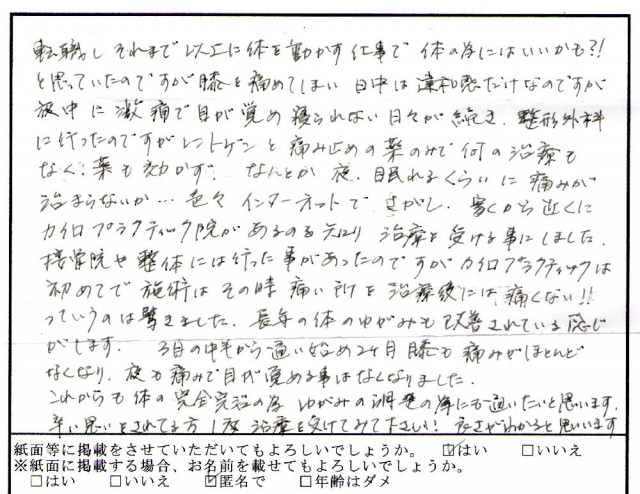 転職しそれまで以上に体を動かす仕事で体の為にはいいかも?!
と思っていたのですが膝を痛めてしまい日中は違和感だけなのですが
夜中に激痛で目が覚め寝られない日々が続き、整形外科
に行ったのですがレントゲンと痛み止めの薬のみで何の治療も
なく、薬も効かず、なんとか夜、眠れるくらいに痛みが
治まらないか…色々インターネットでさがし、家から近くに
カイロプラクティック院があるのを知り治療を受ける事にしました。
接骨院や整体には行った事があったのですがカイロプラクティックは
初めてで施術はその時痛い所を治療後には痛くない!!
っていうのは驚きました。長年の体のゆがみも改善されている感じ
がします。3月の中半から通い始め2ヶ月膝も痛みがほとんど
なくなり、夜も痛みで目が覚める事はなくなりました。
これからも体の完全完治の為ゆがみの調整の為にも通いたいと思います。
辛い思いをされてる方1度治療を受けてみて下さい!良さがわかると思います
紙面等に掲載をさせていただいてもよろしいでしょうか。 ☑はい □いいえ
※紙面に掲載する場合、お名前を載せてもよろしいでしょうか。
□はい □いいえ ☑匿名で □年齢はダメ